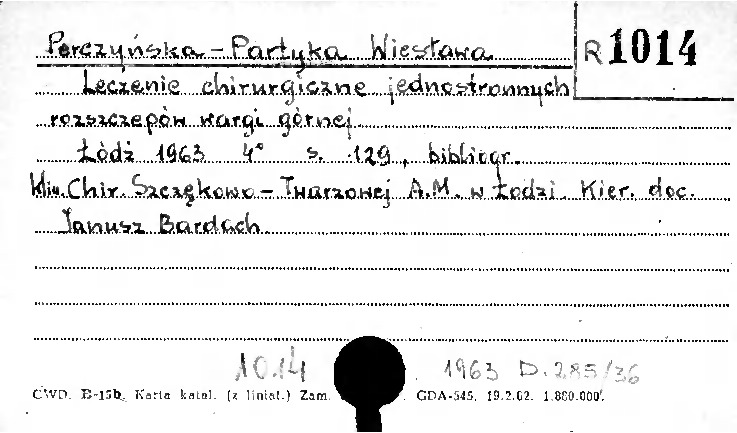 Perczyńska - Partyka Wiesława R 1014
Leczenie chirurgiczne jednostronnych
rozszczepów wargi górnej
Łódź 1963 4° s. 129, bibliogr.
Klin. Chir. Szczękowo - Twarzowej A.M. w Łodzi. Kier. doc.
Janusz Bardach.
1014 1963 D.285/36
CWD. B-15b. Karta katal. (z liniat.) Zam. GDA-545. 19.2.62. 1.800.000.